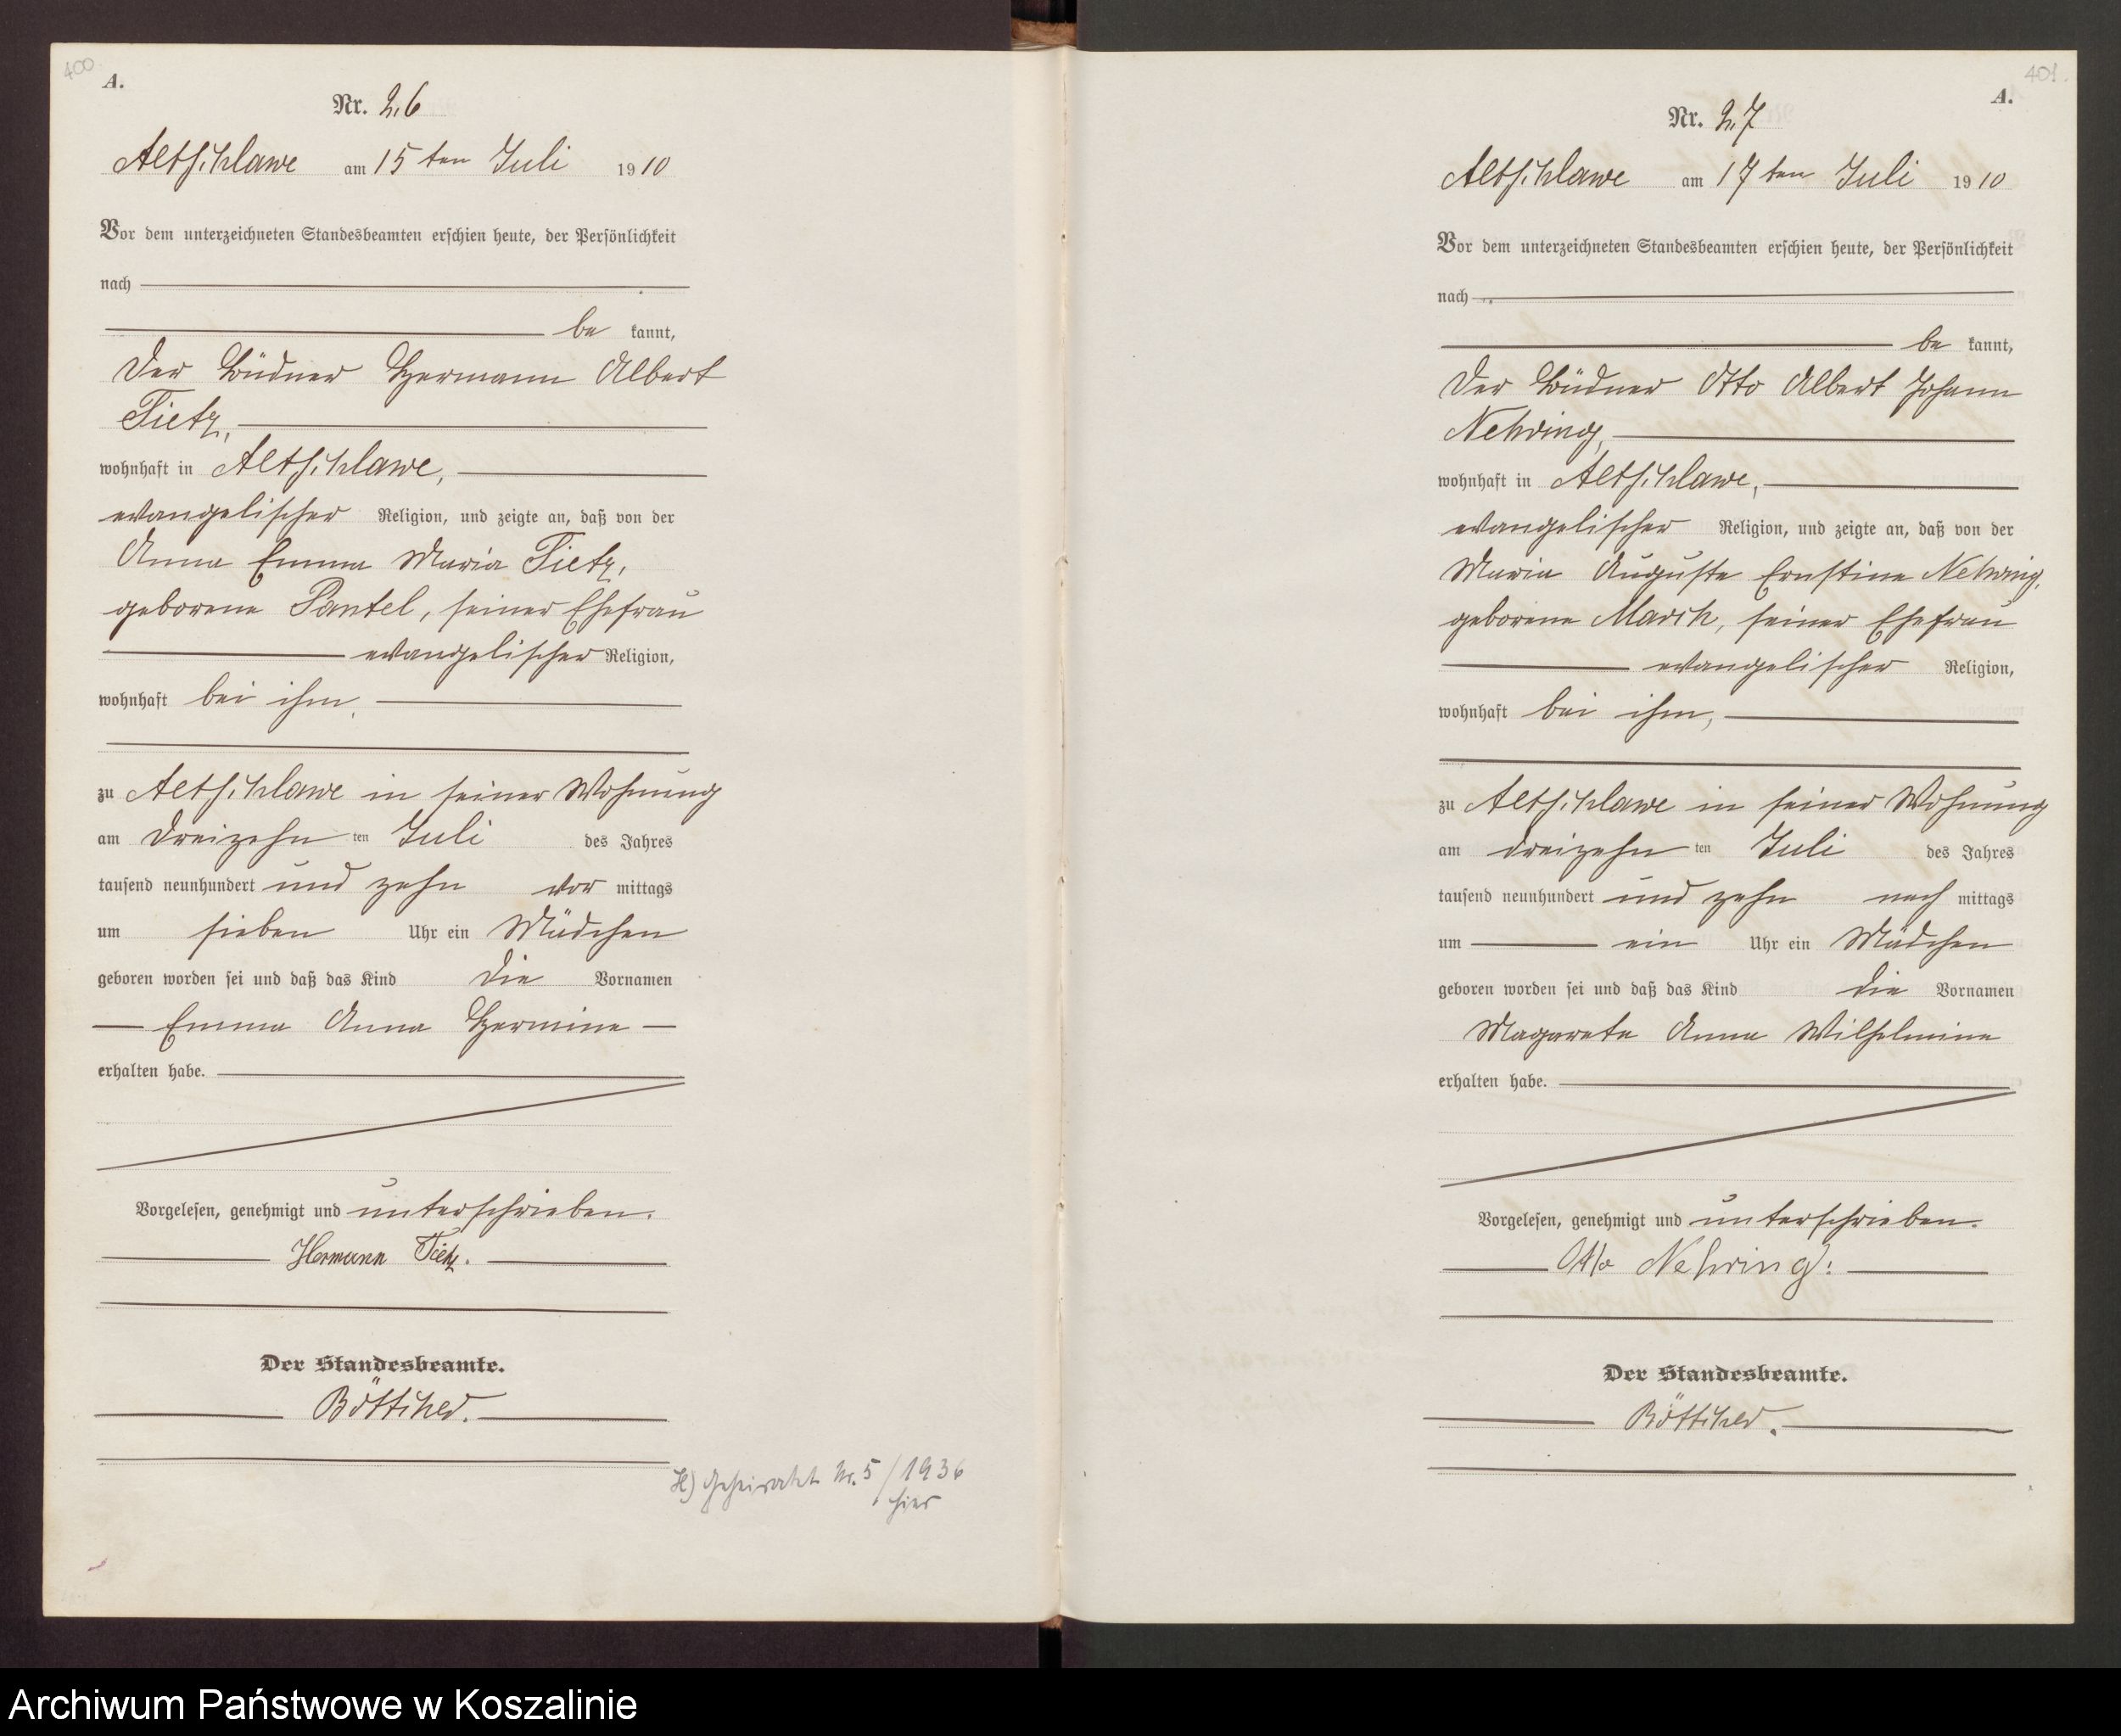 400
A.
Nr. 26
Altschlawe am 15 ten Juli 1910
Vor dem unterzeichneten Standesbeamten erschien heute, der Persönlichkeit
nach
be kannt,
Der Büdner Hermann Albert
Tietz,
wohnhaft in Altschlawe,
evangelischer Religion, und zeigte an, daß von der
Anna Emma Maria Tietz,
geborene Pantel, seiner Ehefrau
evangelischer Religion,
wohnhaft bei ihm,
zu Altschlawe in seiner Wohnung
am dreizehn ten Juli des Jahres
tausend neunhundert und zehn vor mittags
um sieben Uhr ein Mädchen
geboren worden sei und daß das Kind die Vornamen
Emma Anna Hermine
erhalten habe.
Vorgelesen, genehmigt und unterschrieben.
Hermann Tietz.
Der Standesbeamte.
Böttcher.
geheiratet Nr. 5/1936
hier
401.
A.
Nr. 27
Altschlawe am 17 ten Juli 1910
Vor dem unterzeichneten Standesbeamten erschien heute, der Persönlichkeit
nach
be kannt,
Der Büdner Otto Albert Johann
Nehring,
wohnhaft in Altschlawe,
evangelischer Religion, und zeigte an, daß von der
Maria Auguste Ernstine Nehring,
geborene March, seiner Ehefrau
evangelischer Religion,
wohnhaft bei ihm,
zu Altschlawe in seiner Wohnung
am dreizehn ten Juli des Jahres
tausend neunhundert und zehn nach mittags
um ein Uhr ein Mädchen
geboren worden sei und daß das Kind die Vornamen
Magareta Anna Wilhelmine
erhalten habe.
Vorgelesen, genehmigt und unterschrieben.
Otto Nehring.
Der Standesbeamte.
Böttcher.
Archiwum Państwowe w Koszalinie